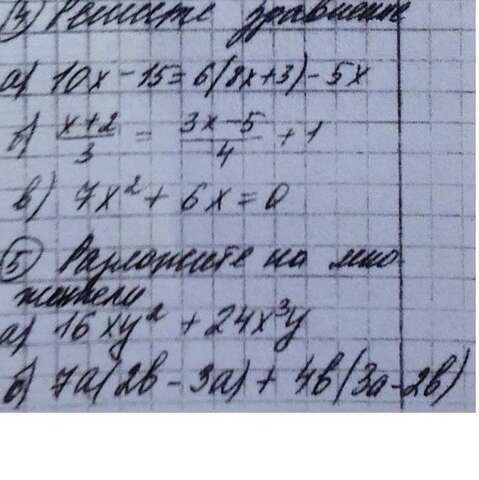 ③ Решите уравнение
а) 10x - 15 = 6(8x+3) - 5x
б) \frac{x+2}{3} = \frac{3x-5}{4} + 1
в) 7x² + 6x = 0
⑤ Разложите на мно
жители
а) 16xy² + 24x³y
б) 7a(2b - 3a) + 4b(3a - 2b)